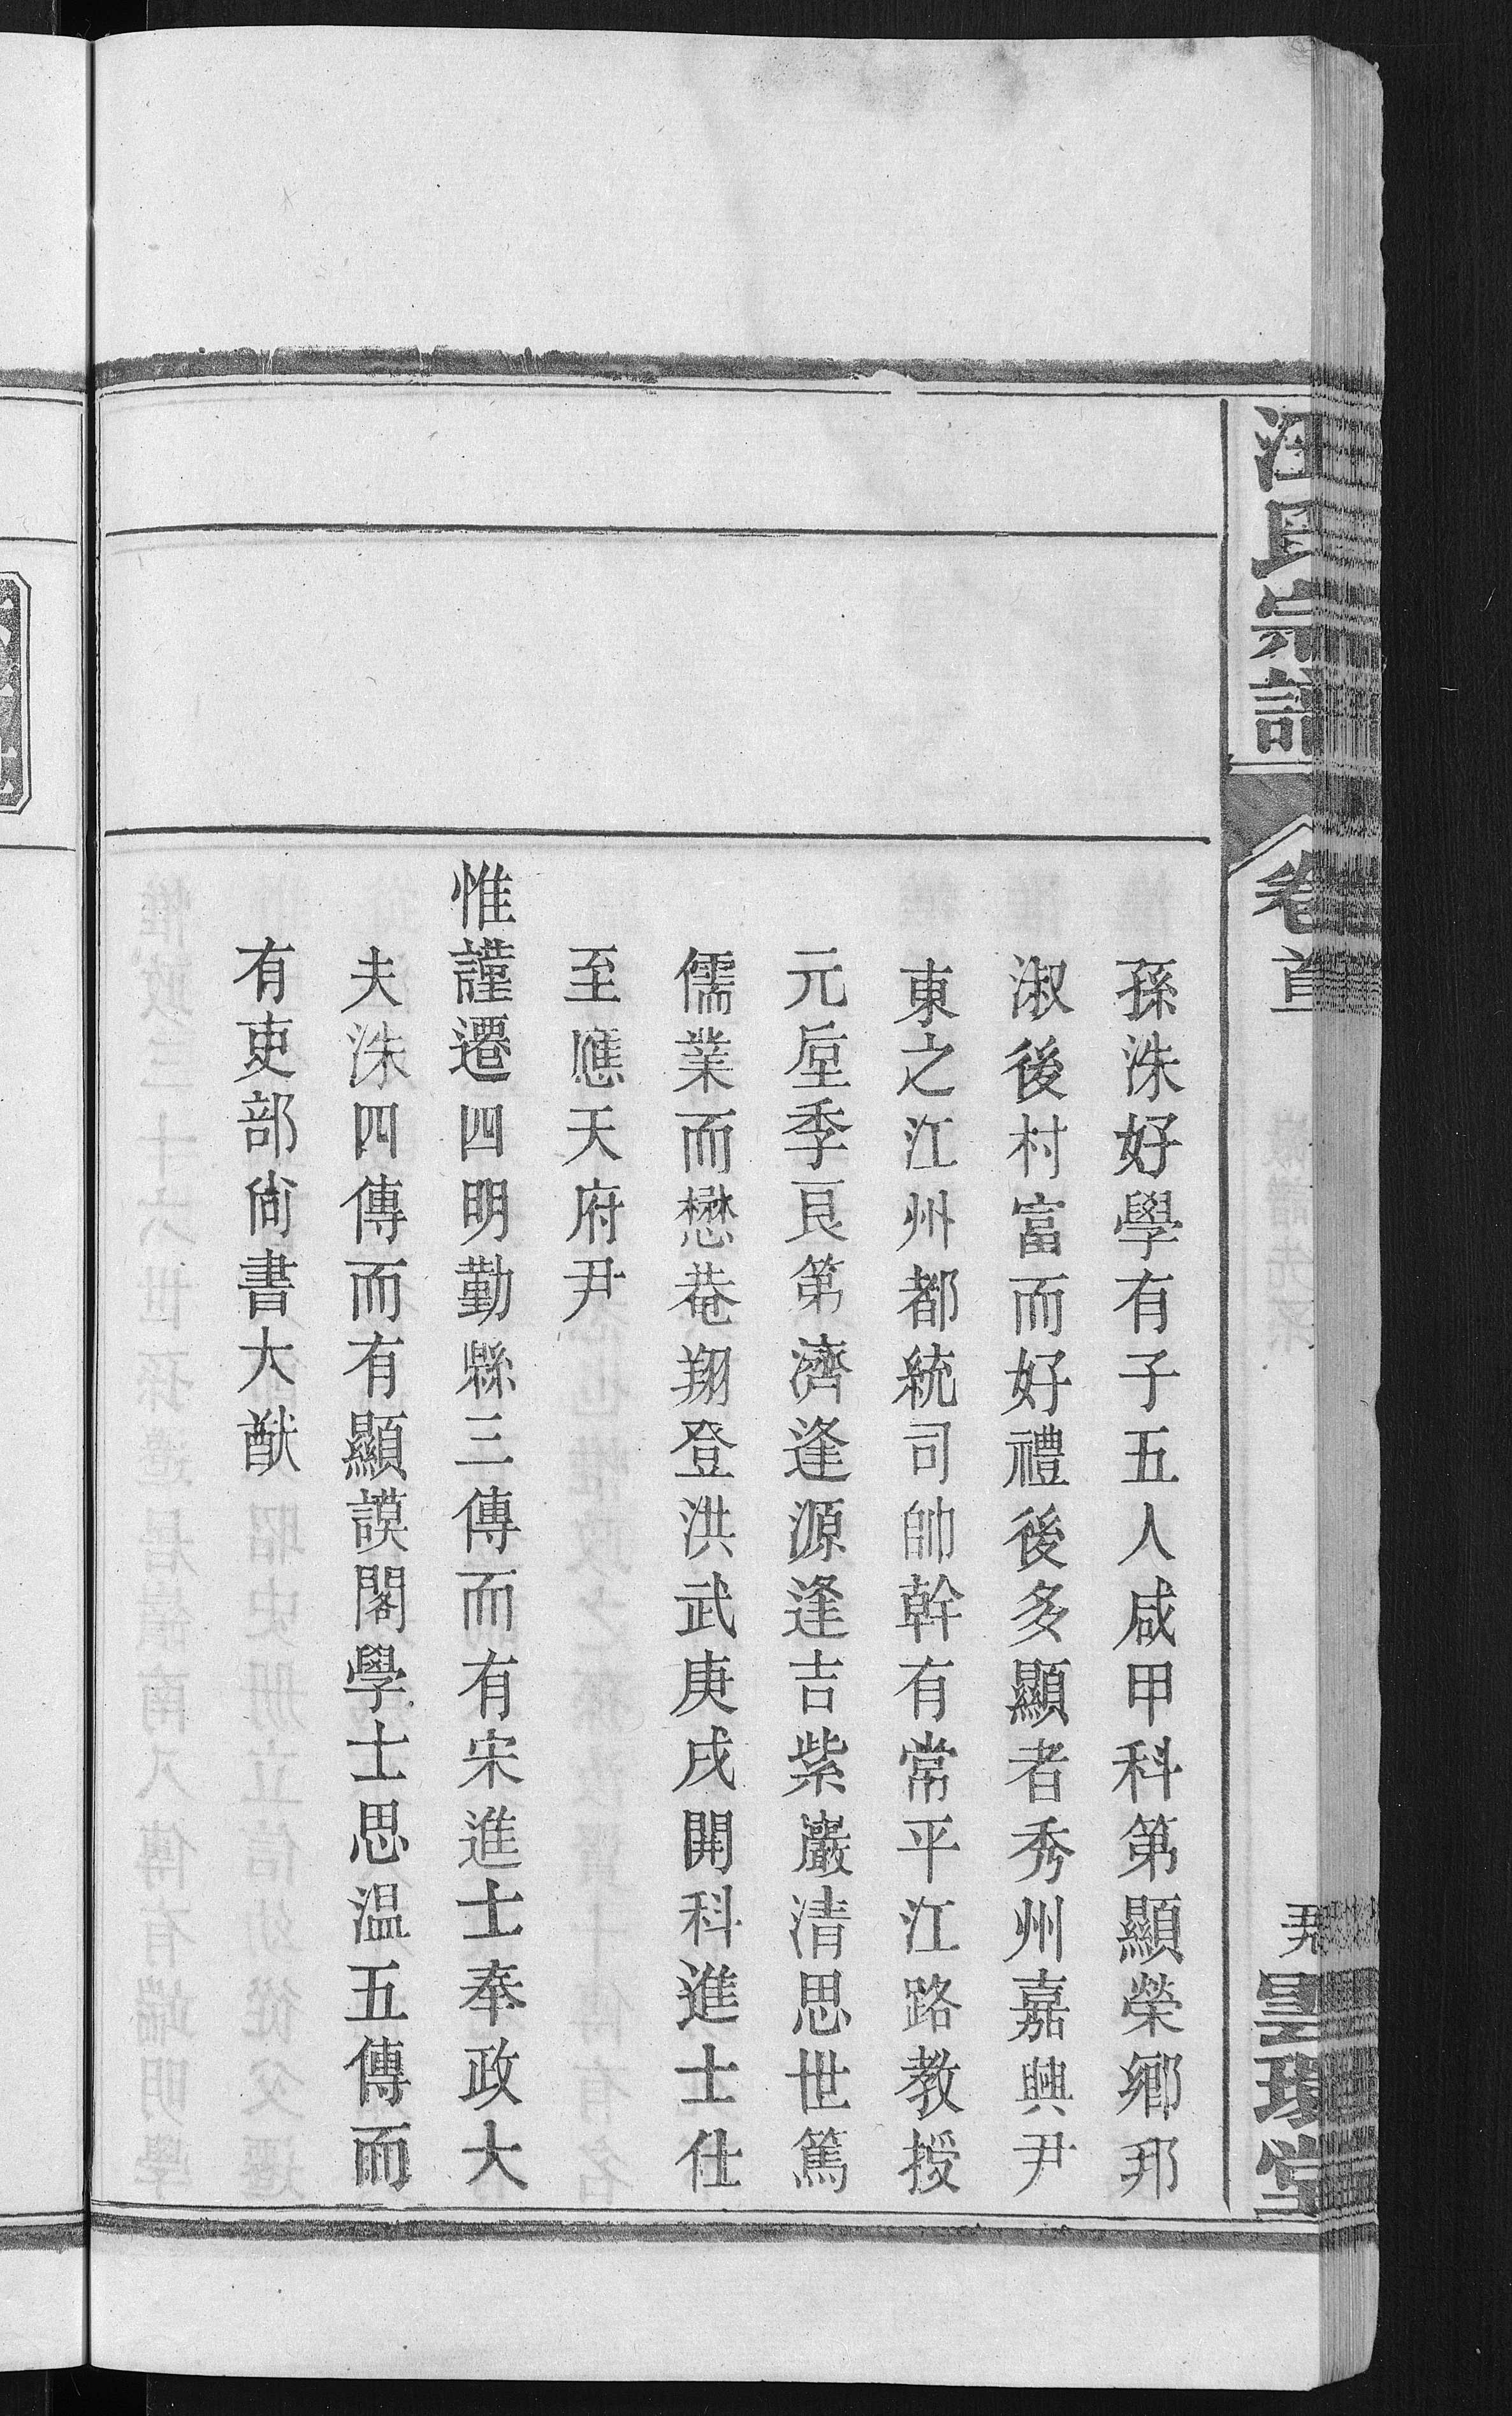 汪氏宗譜
卷首
孫洙好學有子五人咸甲科第顯榮鄉邦
淑後村富而好禮後多顯者秀州嘉興尹
東之江州都統司帥幹有常平江路教授
元垕季良第濟逢源逢吉紫巖清思世篤
儒業而懋菴翔登洪武庚戌開科進士仕
至應天府尹
惟謹遷四明勤縣三傳而有宋進士奉政大
夫洙四傳而有顯謨閣學士思温五傳而
有吏部尙書大猷